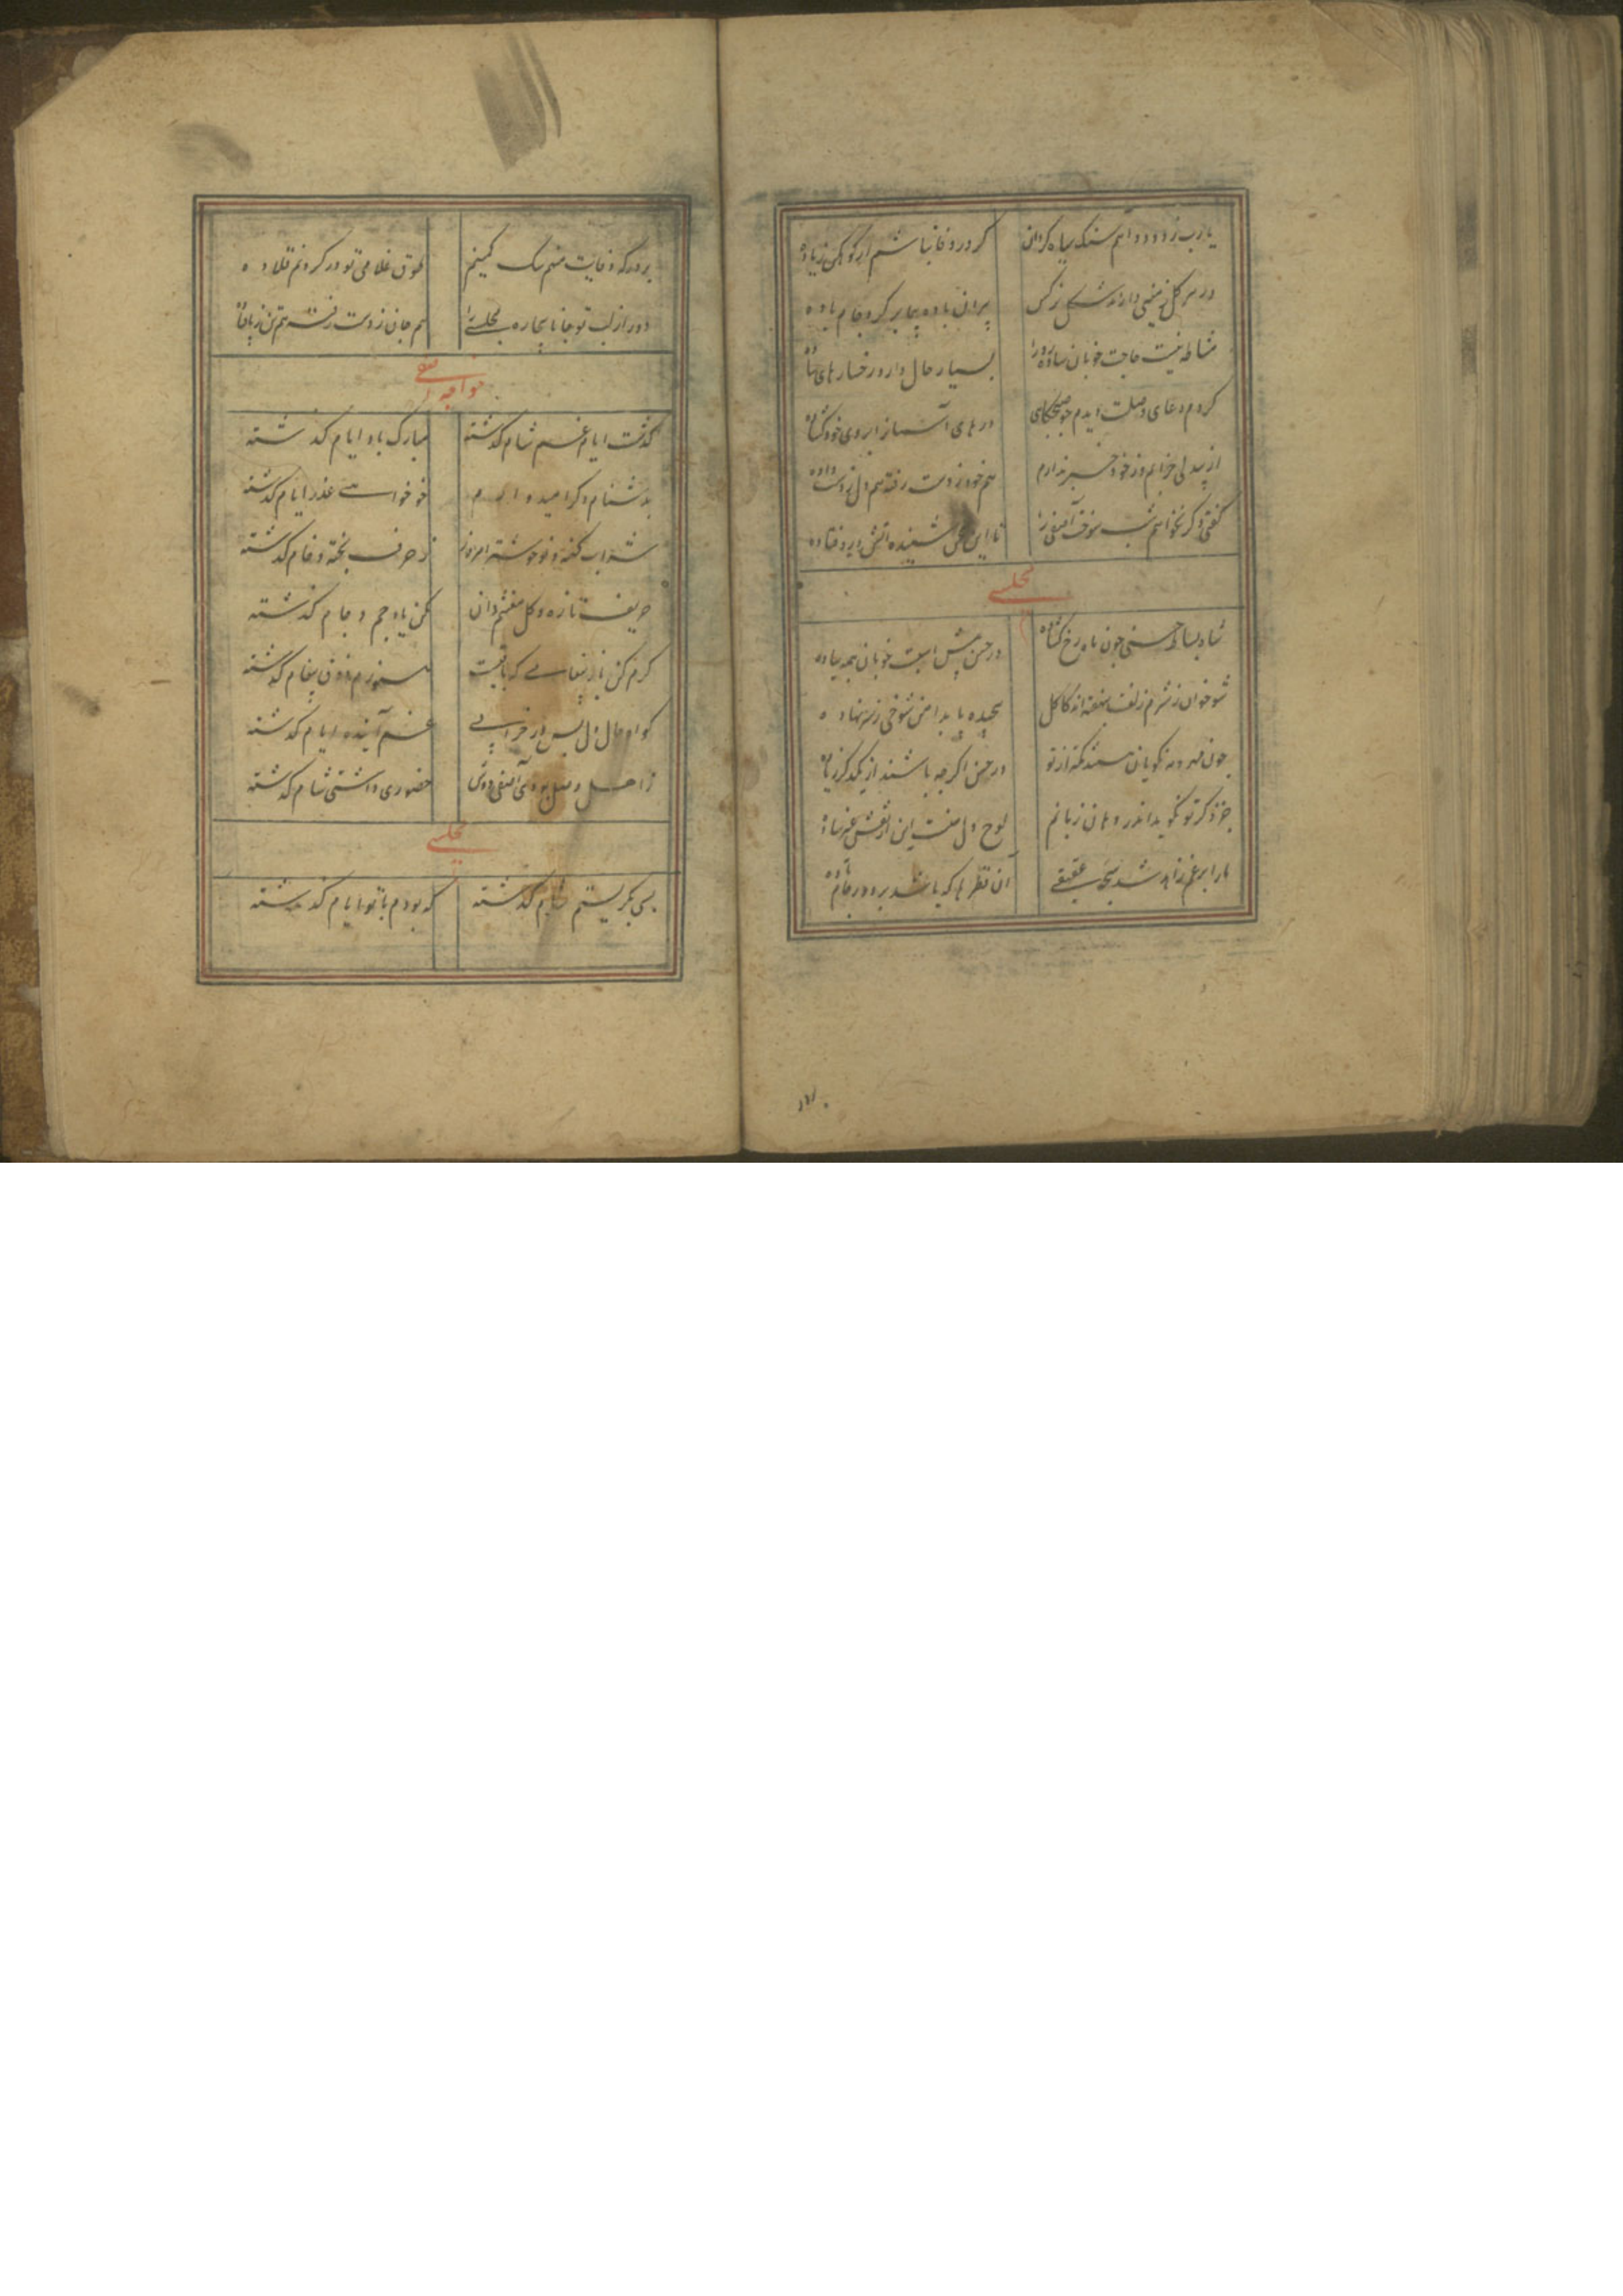 یارب ز دود آهم سنک سیاه کردان کر در وفا نباشم از کوهکن زیاده
در هر کل زمینی دارند شکل نرکس پیران باده پیما بر کرد جام باده
مشاطه نیست حاجت خوبان ساده رو را بسیار خال دارد رخسارهای ساده
کردم دعای وصلت دیدم جو صبحکاهی درهای آسمان از ابروی خود کشاده
از بیدلی خرابم وز خود خبر ندارم هم خود ز دست رفته هم دل ز دست داده
کفتی دکر نخواهم شب سوخت آصفی را تا این سخن شنیده آتش در و فتاده
مجلسی
شاه بساط حسنی جون ماه رخ کشاده در حسن پیش اسبت خوبان همه پیاده
شوخان ز شرم زلفت کاکل پیچیده پا بدامن شوخی ز سر نهاده
جون مهر و مه نکویان هستند کمتر از تو در حسن اکرجه باشند از یکدکر زیاده
جز ذکر تو نکوید اندر دهان زبانم لوح دلمست این از نقش غیر ساده
ما را برغم زاهد شد سبحه عقیقی آن قطرها که باشد بر دور جام باده
بر درکه وفایت منم سک کمینم طوق غلامی تو در کردنم قلاده
دور از لب تو جانا بیچاره مجلسی را هم جان ز دست رفته هم تن ز پا فتاده
خواجه آصفی
کذشت ایام غم شام کذشته مبارک باد ایام کذشته
بدشنام دکر امیدوارم جو خواهی عذر ایام کذشته
شراب کهنه و نو خوشتر امروز ز حرف پخته و خام کذشته
حریف تازه و کل مغتنم دان مکن یاد جم و جام کذشته
کرم کن باز پیغامی که باقیست هنوزم ذوق پیغام کذشته
کواه حال دل پس از خرابی غم آینده و ایام کذشته
ز اهل وصل بودی آصفی دوش حضوری داشتی شام کذشته
مجلسی
بسی بکریستم شام کذشته که بودم با تو ایام کذشته